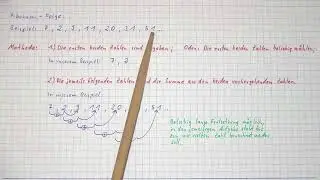 Fibonacci - Folge
Beispiel: 7, 2, 9, 11, 20, 31, 51,
Methode: 1.) Die ersten beiden Zahlen sind gegeben; Oder: Die ersten beiden Zahlen beliebig wählen.
In unserem Beispiel: 7, 2
2.) Die jeweils folgenden Zahlen sind die Summe aus den beiden vorhergehenden Zahlen.
In unserem Beispiel:
7, 2, 9, 11, 20, 51
Beliebig lange Fortsetzung möglich,
in der jeweiligen Aufgabe steht bis
zur wie vielten Zahl berechnet werden
soll.